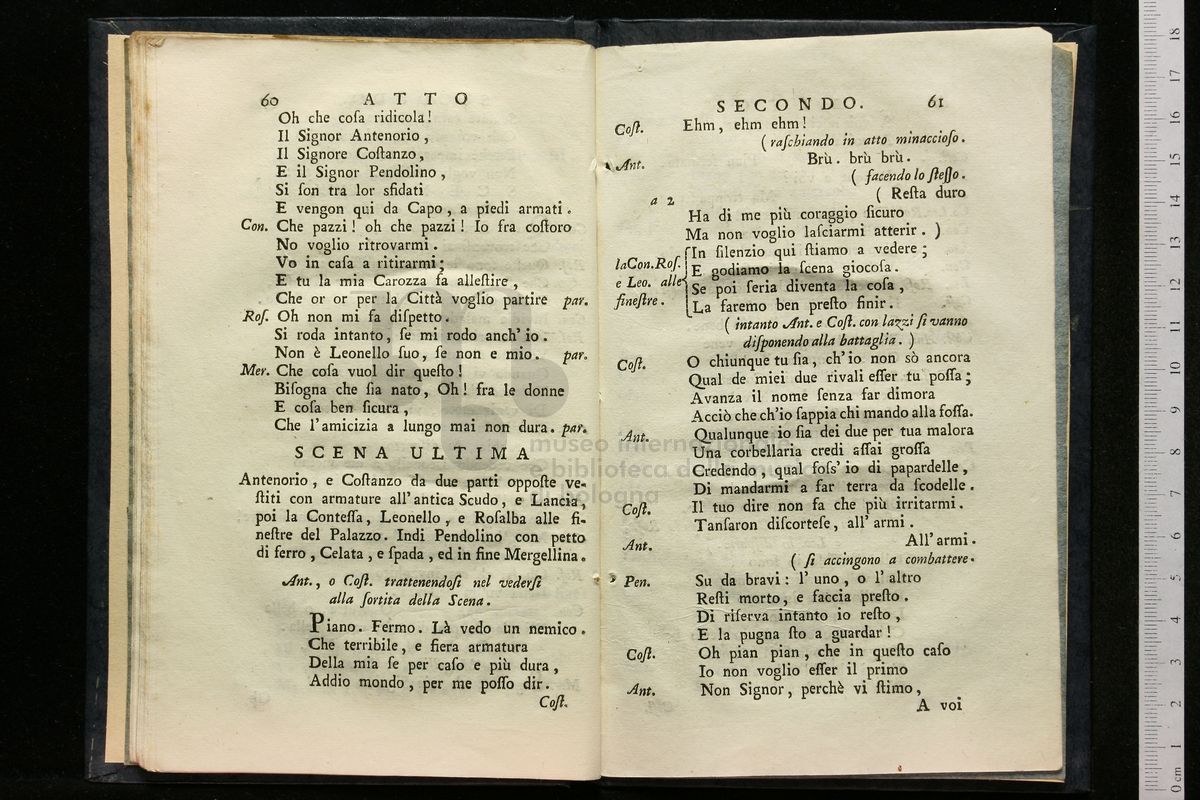 60 ATTO
Oh che coſa ridicola!
Il Signor Antenorio,
Il Signore Coſtanzo,
E il Signor Pendolino,
Si ſon tra lor sfidati
E vengon qui da Capo, a piedi armati.
Con. Che pazzi! oh che pazzi! Io fra coſtoro
No voglio ritrovarmi.
Vo in caſa a ritirarmi;
E tu la mia Carozza fa alleſtire,
Che or or per la Città voglio partire par.
Roſ. Oh non mi fa diſpetto.
Si roda intanto, ſe mi rodo anch' io.
Non è Leonello ſuo, ſe non e mio. par.
Mer. Che coſa vuol dir queſto!
Biſogna che ſia nato, Oh! fra le donne
E coſa ben ſicura,
Che l'amicizia a lungo mai non dura. par.
SCENA ULTIMA
Antenorio, e Coſtanzo da due parti oppoſte ve-
ſtiti con armature all'antica Scudo, e Lancia,
poi la Conteſſa, Leonello, e Roſalba alle fi-
neſtre del Palazzo. Indi Pendolino con petto
di ferro, Celata, e ſpada, ed in fine Mergellina.
Ant., o Coſt. trattenendoſi nel vederſi
alla ſortita della Scena.
Piano. Fermo. Là vedo un nemico.
Che terribile, e fiera armatura
Della mia ſe per caſo e più dura,
Addio mondo, per me poſſo dir.
Coſt.
SECONDO. 61
Coſt. Ehm, ehm ehm!
(raſchiando in atto minaccioſo.
Ant. Brù. brù brù.
(facendo lo ſteſſo.
a 2 (Reſta duro
Ha di me più coraggio ſicuro
Ma non voglio laſciarmi atterir.)
In ſilenzio qui ſtiamo a vedere;
la Con. Roſ. E godiamo la ſcena giocoſa.
e Leo. alle Se poi ſeria diventa la coſa,
fineſtre. La faremo ben preſto finir.
(intanto Ant. e Coſt. con lazzi ſi vanno
diſponendo alla battaglia.)
Coſt. O chiunque tu ſia, ch' io non sò ancora
Qual de miei due rivali eſſer tu poſſa;
Avanza il nome ſenza far dimora
Acciò che ch'io ſappia chi mando alla foſſa.
Ant. Qualunque io ſia dei due per tua malora
Una corbellaria credi aſſai groſſa
Credendo, qual foſs' io di papardelle,
Di mandarmi a far terra da ſcodelle.
Coſt. Il tuo dire non fa che più irritarmi.
Tanſaron diſcorteſe, all' armi.
Ant. All' armi.
(ſi accingono a combattere.
Pen. Su da bravi: l' uno, o l' altro
Reſti morto, e faccia preſto.
Di riſerva intanto io reſto,
E la pugna ſto a guardar!
Coſt. Oh pian pian, che in queſto caſo
Io non voglio eſſer il primo
Ant. Non Signor, perchè vi ſtimo,
A voi
museo internazionale
e biblioteca della musica
bologna
0 cm 1 2 3 4 5 6 7 8 9 10 11 12 13 14 15 16 17 18